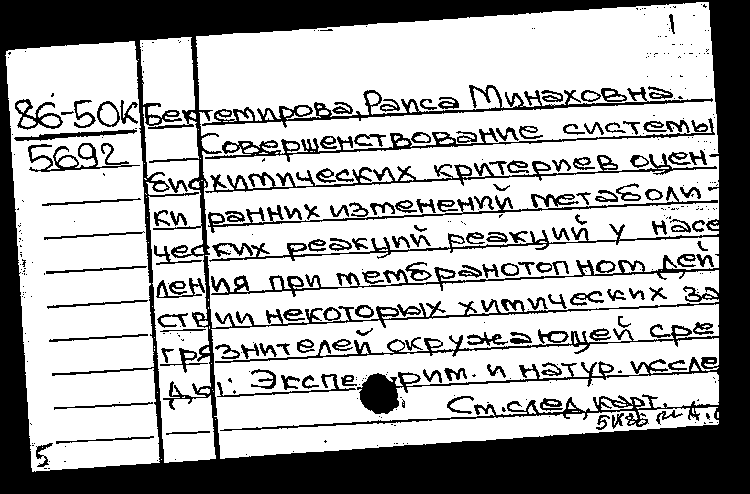 1
86-50К Бектемирова, Раиса Минаховна.
5692 Совершенствование системы
биохимических критериев оцен-
ки ранних изменений метаболи-
ческих реакций реакций у насе
ления при мембранотопном дей
ствии некоторых химических за
грязнителей окружающей сре
ды: Экспе рим. и натур. иссле
См. след. карт.
5